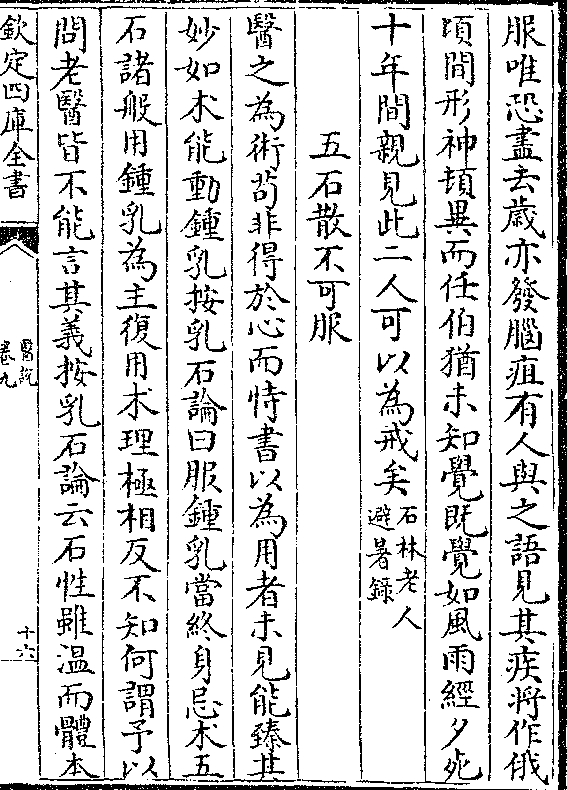 服唯恐盡去歲亦發腦疽有人與之語見其疾將作俄
頃間形神頓異而任伯猶未知覺既覺如風雨經夕死
十年間親見此二人可以為戒矣石林老人避暑錄
五石散不可服
醫之為術苟非得於心而恃書以為用者未見能臻其
妙如术能動鍾乳按乳石論曰服鍾乳當終身忌术五
石諸般用鍾乳為主復用术理極相反不知何謂予以
問老醫皆不能言其義按乳石論云石性雖溫而體本
欽定四庫全書
醫說
卷九
十六